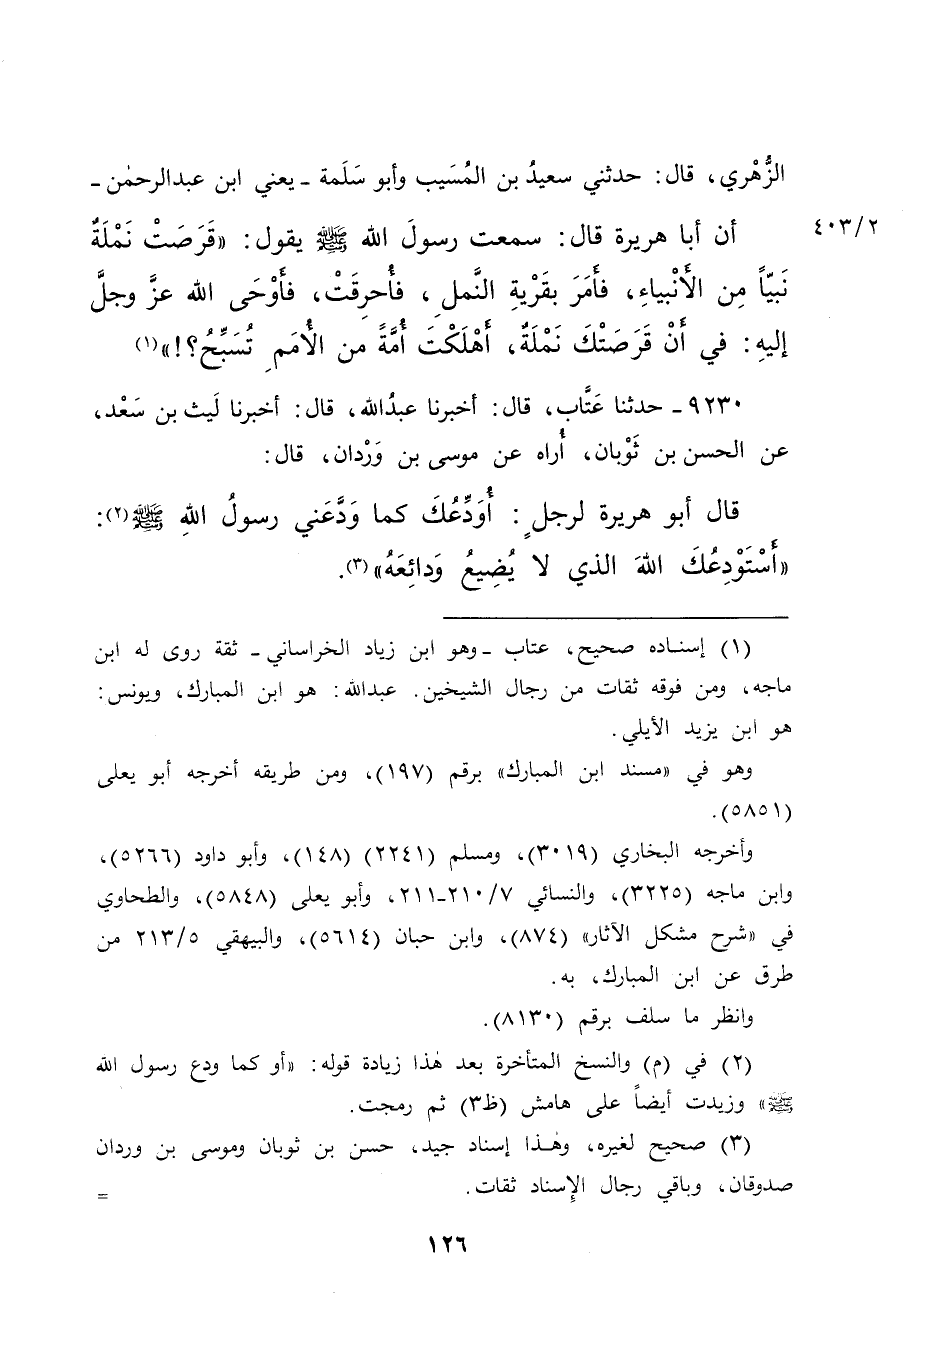 الزُّهْري، قال: حدثني سعيدُ بن المُسَيب وأبو سَلَمة ـ يعني ابن عبدالرحمٰن ـ
٤٠٣/٢
أن أبا هريرة قال: سمعت رسولَ الله ﷺ يقول: «قَرَصَتْ نَمْلَةٌ
نَبيّاً مِن الأَنْبياءِ، فأَمَرَ بقَرْيةِ النَّملِ، فأُحرِقتْ، فأَوْحَى الله عزَّ وجلَّ
إليهِ: في أَنْ قَرَصَتْكَ نَمْلَةٌ، أَهْلَكْتَ أُمَّةً من الأُمَمِ تُسَبِّحُ؟!»(١)
٩٢٣٠ـ حدثنا عَتَّاب، قال: أخبرنا عبدُالله، قال: أخبرنا لَيث بن سَعْد،
عن الحسن بن ثَوْبان، أُراه عن موسى بن وَرْدان، قال:
قال أبو هريرة لرجلٍ: أُوَدِّعُكَ كما وَدَّعَني رسولُ اللهِ ﷺ(٢):
«أَسْتَوْدِعُكَ اللهَ الذي لا يُضِيعُ وَدائِعَهُ»(٣).
(١) إسناده صحيح، عتاب ـ وهو ابن زياد الخراساني ـ ثقة روى له ابن
ماجه، ومن فوقه ثقات من رجال الشيخين. عبدالله: هو ابن المبارك، ويونس:
هو ابن يزيد الأيلي.
وهو في «مسند ابن المبارك» برقم (١٩٧)، ومن طريقه أخرجه أبو يعلى
(٥٨٥١).
وأخرجه البخاري (٣٠١٩)، ومسلم (٢٢٤١) (١٤٨)، وأبو داود (٥٢٦٦)،
وابن ماجه (٣٢٢٥)، والنسائي ٢١٠/٧ـ٢١١، وأبو يعلى (٥٨٤٨)، والطحاوي
في «شرح مشكل الآثار» (٨٧٤)، وابن حبان (٥٦١٤)، والبيهقي ٢١٣/٥ من
طرق عن ابن المبارك، به.
وانظر ما سلف برقم (٨١٣٠).
(٢) في (م) والنسخ المتأخرة بعد هٰذا زيادة قوله: «أو كما ودع رسول الله
ﷺ» وزيدت أيضاً على هامش (ظ٣) ثم رمجت.
(٣) صحيح لغيره، وهٰذا إسناد جيد، حسن بن ثوبان وموسى بن وردان
صدوقان، وباقي رجال الإسناد ثقات. =
١٢٦